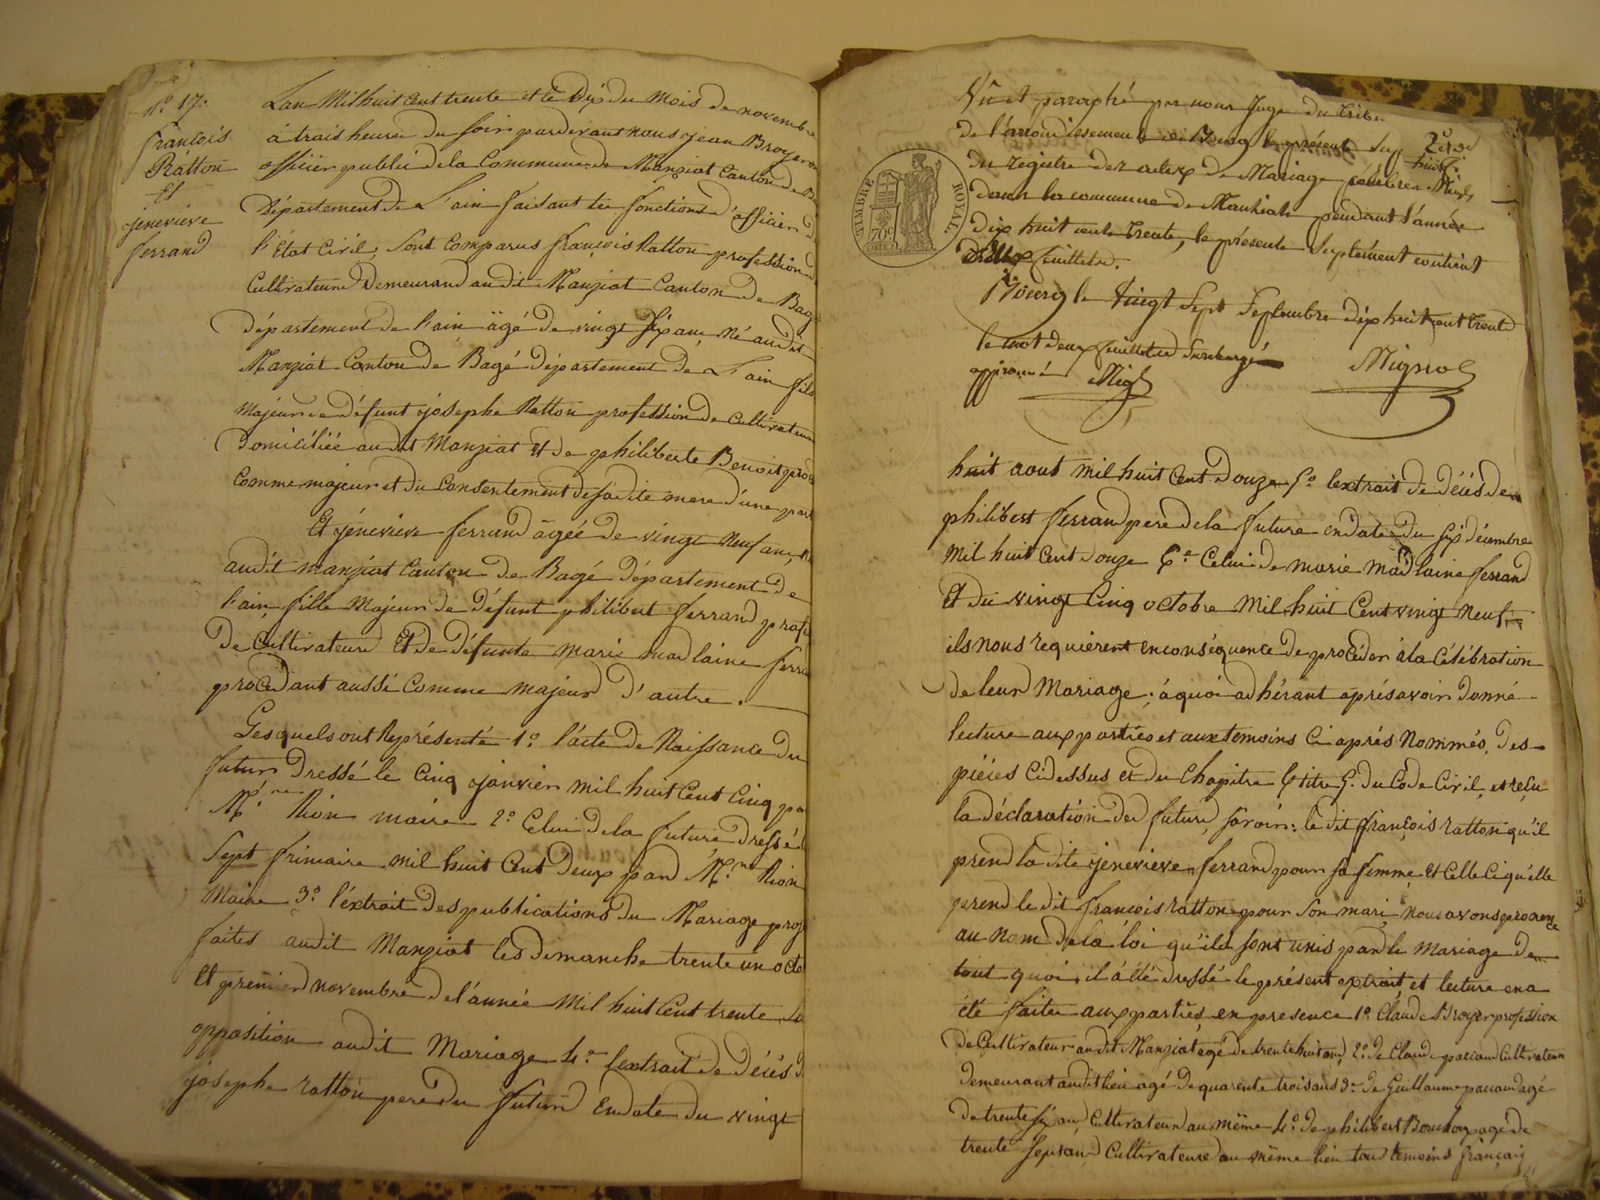 N.° 17.
françois
Ratton
Et
jenevieve
ferrand
L'an Mil huit Cent trente et le Dix du Mois de novembre
à trois heures du soir pardevant nous jean Broyer
officier public de la Commune de Manziat Canton de B
Département de L'ain faisant les fonctions d'officier d
l'Etat Civil, sont Comparus françois Ratton profession d
Cultivateur Demeurand audit Manziat Canton de Bag
département de l'ain âgé de vingt six ans, Né audit
Manziat Canton de Bagé Département de L'ain fils
majeur de défunt josephe Ratton profession de Cultivateur
Domiciliée audit Manziat Et de philiberte Benoit proc
Comme majeur et du Consentement de sadite mere d'une part
Et jénevieve ferrand âgée de vingt Neuf ans, N
audit manziat Canton de Bagé Département de
l'ain fille Majeur de Défunt philibert ferrand profe
De Cultivateur Et De Défunte marie madlaine ferra
procedant aussi Comme majeur d'autre.
Lesquels ont Représenté 1.° l'acte de Naissance du
futur Dressé le Cinq janvier mil huit Cent Cinq pa
M.r Rion maire 2.° Celui de la future Dressé l
Sept frimaire mil huit Cent Deux par M.r Rion
Maire 3.° l'extrait des publications du Mariage proj
faites audit Manziat les Demanche trente un octo
Et premier novembre de l'année Mil huit Cent trente
opposition audit Mariage 4.° l'extrait de Décés d
josephe ratton pere du futur En date du vingt
Vû et paraphé par nous Juge du Tribu
de l'arrondissement de Bourg le présent Sup
du registre des actes de Mariage
dans la commune de Manziat pendant l'année
dix huit cent trente, le présent Suplément contient
deux feuillets.
Bourg le vingt Sept Septembre dix huit cent trent
le mot deux feuillets Surchargé
approuvé Mig
Mignot
TIMBRE ROYAL
70c
huit aout mil huit Cent Douze 5.° l'extrait de Décés de
philibert ferrand pere de la future en date du six décembre
mil huit Cent douze 6.° Celui de marie Madlaine ferrand
Et du vingt Cinq octobre Mil huit Cent vingt neuf
ils nous requierent en conséquence de procéder à la Célébration
de leur Mariage; à quoi adhérant aprés avoir Donné
lecture aux parties et aux temoins Ci aprés Nommés, Des
piéces Ci dessus et du Chapitre 6 titre 5. du Code Civil, et reçu
la déclaration des futurs, savoir: le dit françois ratton qu'il
prend la dite jenevieve ferrand pour sa femme, et Celle Ci qu'elle
prend le dit françois ratton pour son mari, nous avons prononcé
au nom de la loi qu'ils sont unis par le Mariage De
tout quoi il a été dressé le présent extrait et lecture en a
été faite aux parties en presence 1.° Claude Broyer profession
de Cultivateur audit Manziat agé de trente huit ans, 2.° de Claude Cultivateur
demeurant audit lieu agé de quarente trois ans 3.° de Guillaume agé
de trente six ans, Cultivateur au même 4.° de philibert agé de
trente sept ans Cultivateur au même lieu tous temoins français